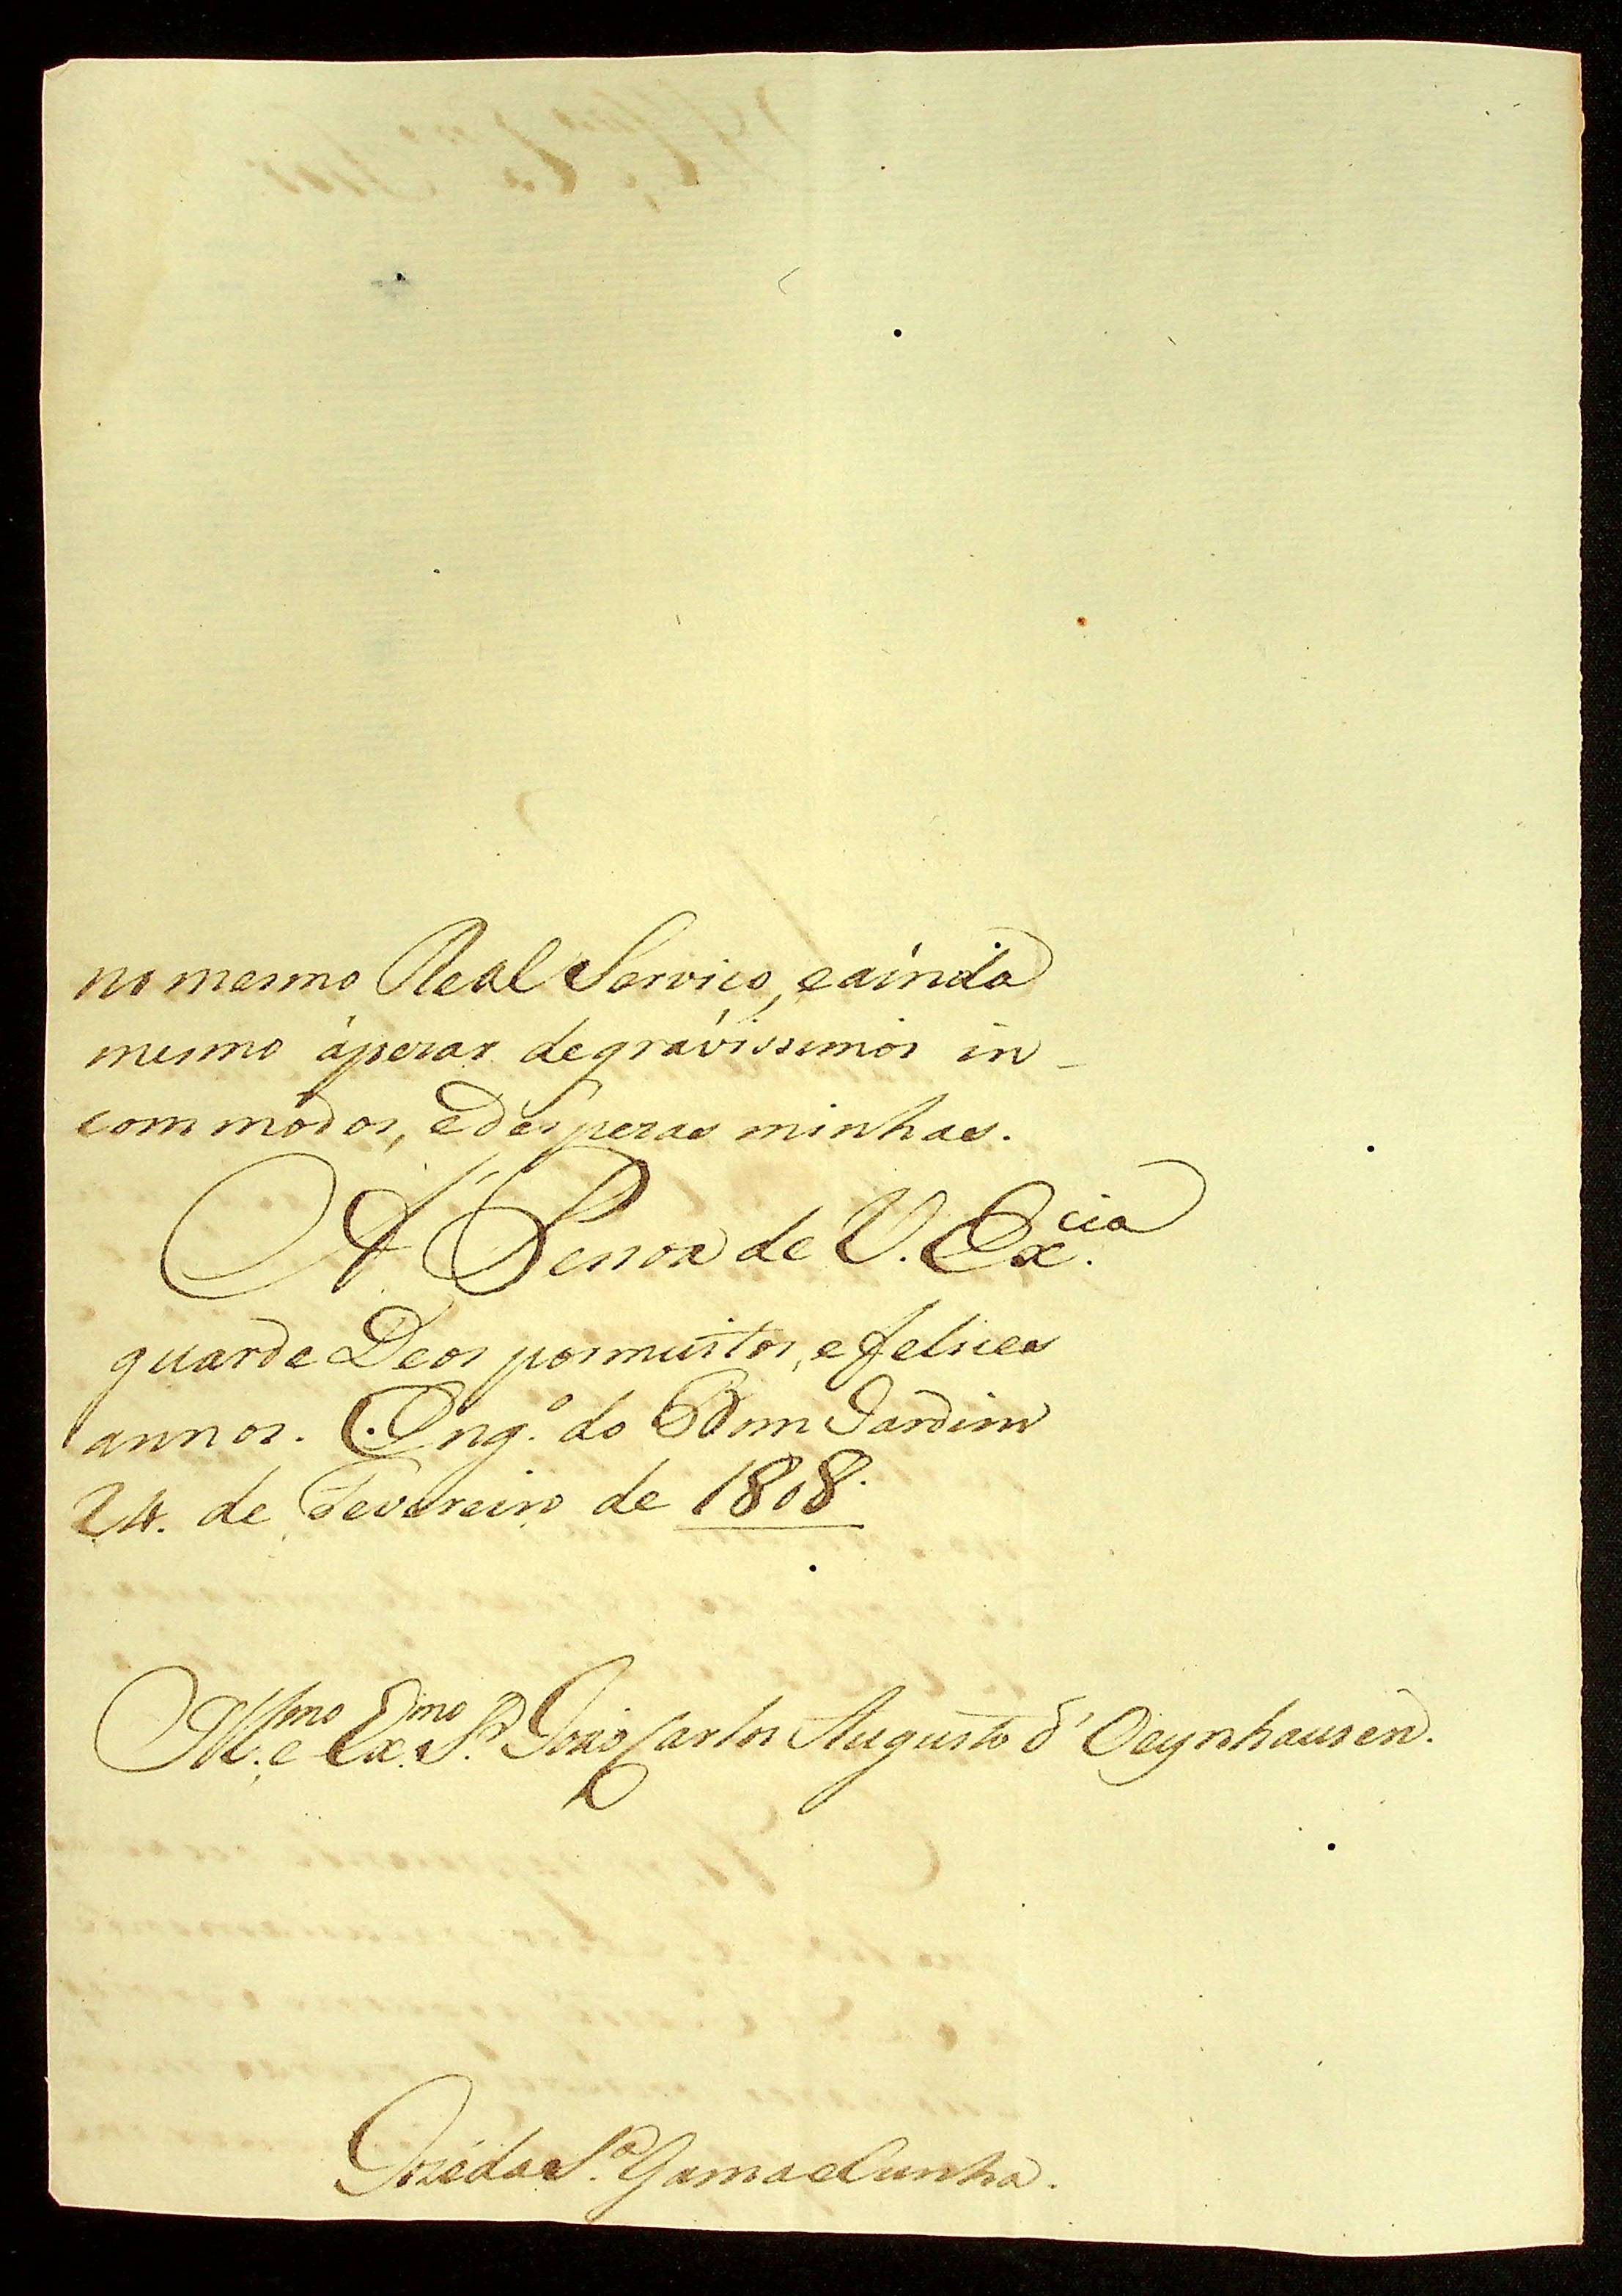 no mesmo Real Serviço, e ainda
mesmo ápezar de gravissimos in-
commodos, e despezas minhas.
A' Pessoa de V. Ex.cia
guarde Deos por muitos, e felices
annos. Eng.o do Bom Jardim
24. de Fevereiro de 1808.
Ill.mo e Ex.mo S.r João Carlos Augusto d' Oeynhausen.
Jozé da S.a Gama e Cunha.